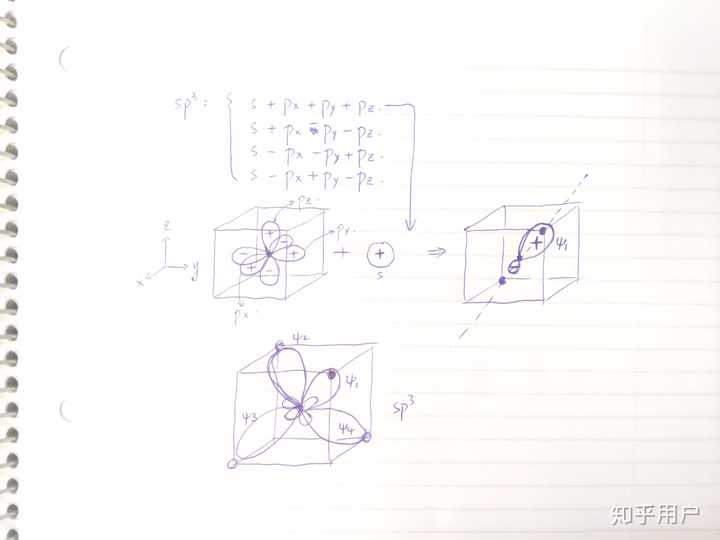 sp³: { s + px + py + pz.
s + px - py - pz.
s - px - py + pz.
s - px + py - pz.
pz.
py.
z
y
x
px.
+ + + - - -
+
+
s
⇒
+
ψ₁
ψ₂
ψ₁
ψ₃
ψ₄
sp³
知乎用户